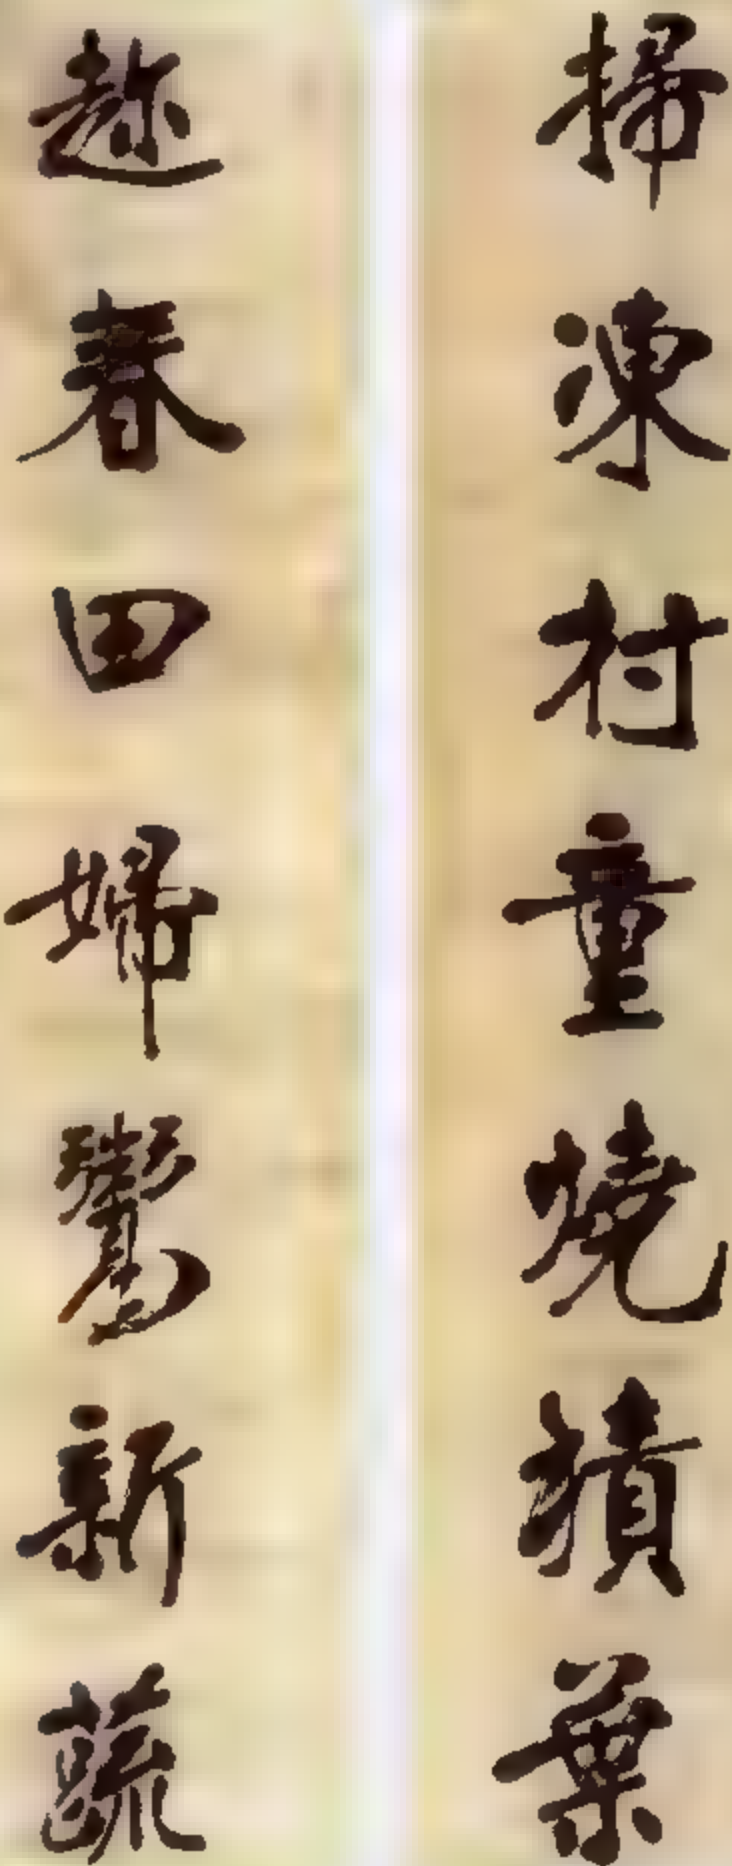 掃凍村童燒積葉
趂春田婦鬻新蔬